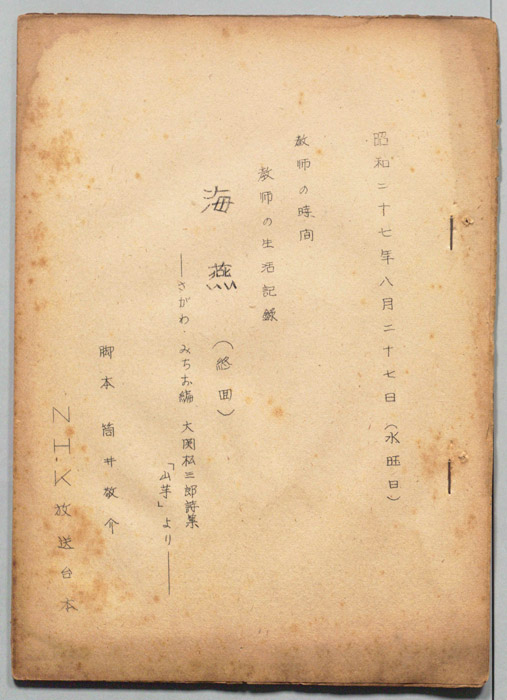 昭和二十七年八月二十七日（水旺日）
教师の時間
教師の生活記録
海燕（終回）
――さがわ・みちお編 大関松三郎詩集
「山芋」より――
脚本 筒井敬介
NHK放送台本